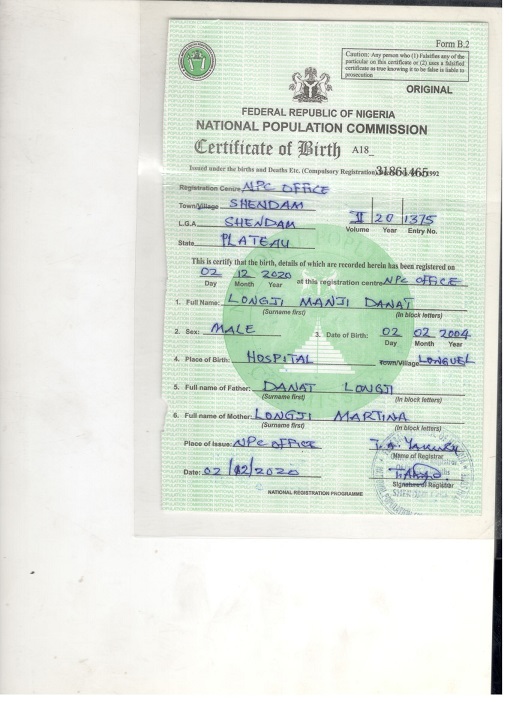 Form B.2
Caution: Any person who (1) Falsifies any of the
particular on this certificate or (2) uses a falsified
certificate as true knowing it to be false is liable to
prosecution
ORIGINAL
FEDERAL REPUBLIC OF NIGERIA
NATIONAL POPULATION COMMISSION
Certificate of Birth A18_
Issued under the births and Deaths Etc. (Compulsory Registration) 31861465 1992
Registration Centre NPC OFFICE
Town/Village SHENDAM
L.G.A. SHENDAM
State PLATEAU
II 20 1375
Volume Year Entry No.
This is certify that the birth, details of which are recorded herein has been registered on
02 12 2020 at this registration centre NPC OFFICE
Day Month Year
1. Full Name: LONGJI MANJI DANAT
(Surname first) (In block letters)
2. Sex: MALE 3. Date of Birth: 02 02 2004
Day Month Year
4. Place of Birth: HOSPITAL Town/Village LONGUEL
5. Full name of Father: DANAT LONGJI
(Surname first) (In block letters)
6. Full name of Mother: LONGJI MARTINA
(Surname first) (In block letters)
Place of Issue: NPC OFFICE
(Name of Registrar
Date: 02/12/2020
Signature of Registrar
NATIONAL REGISTRATION PROGRAMME